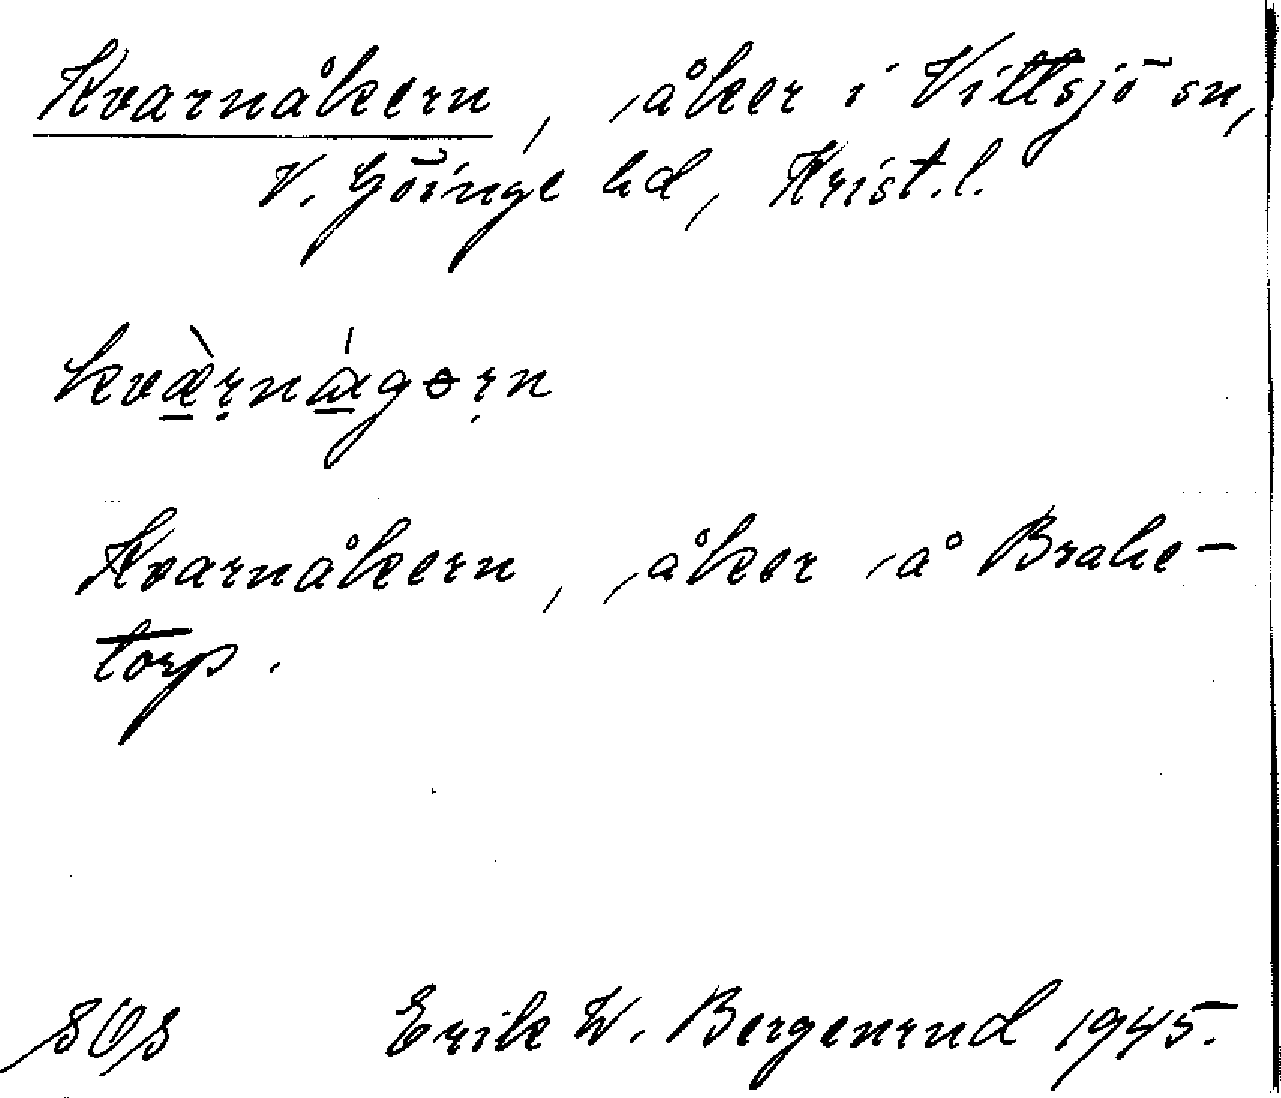 Kvarnåkern, åker i Vittsjö sn,
V. Göinge hd, Krist.l.
kvæ̀rnágərn
Kvarnåkern, åker å Brahe-
torp.
SOS Erik W. Bergenrud 1945.